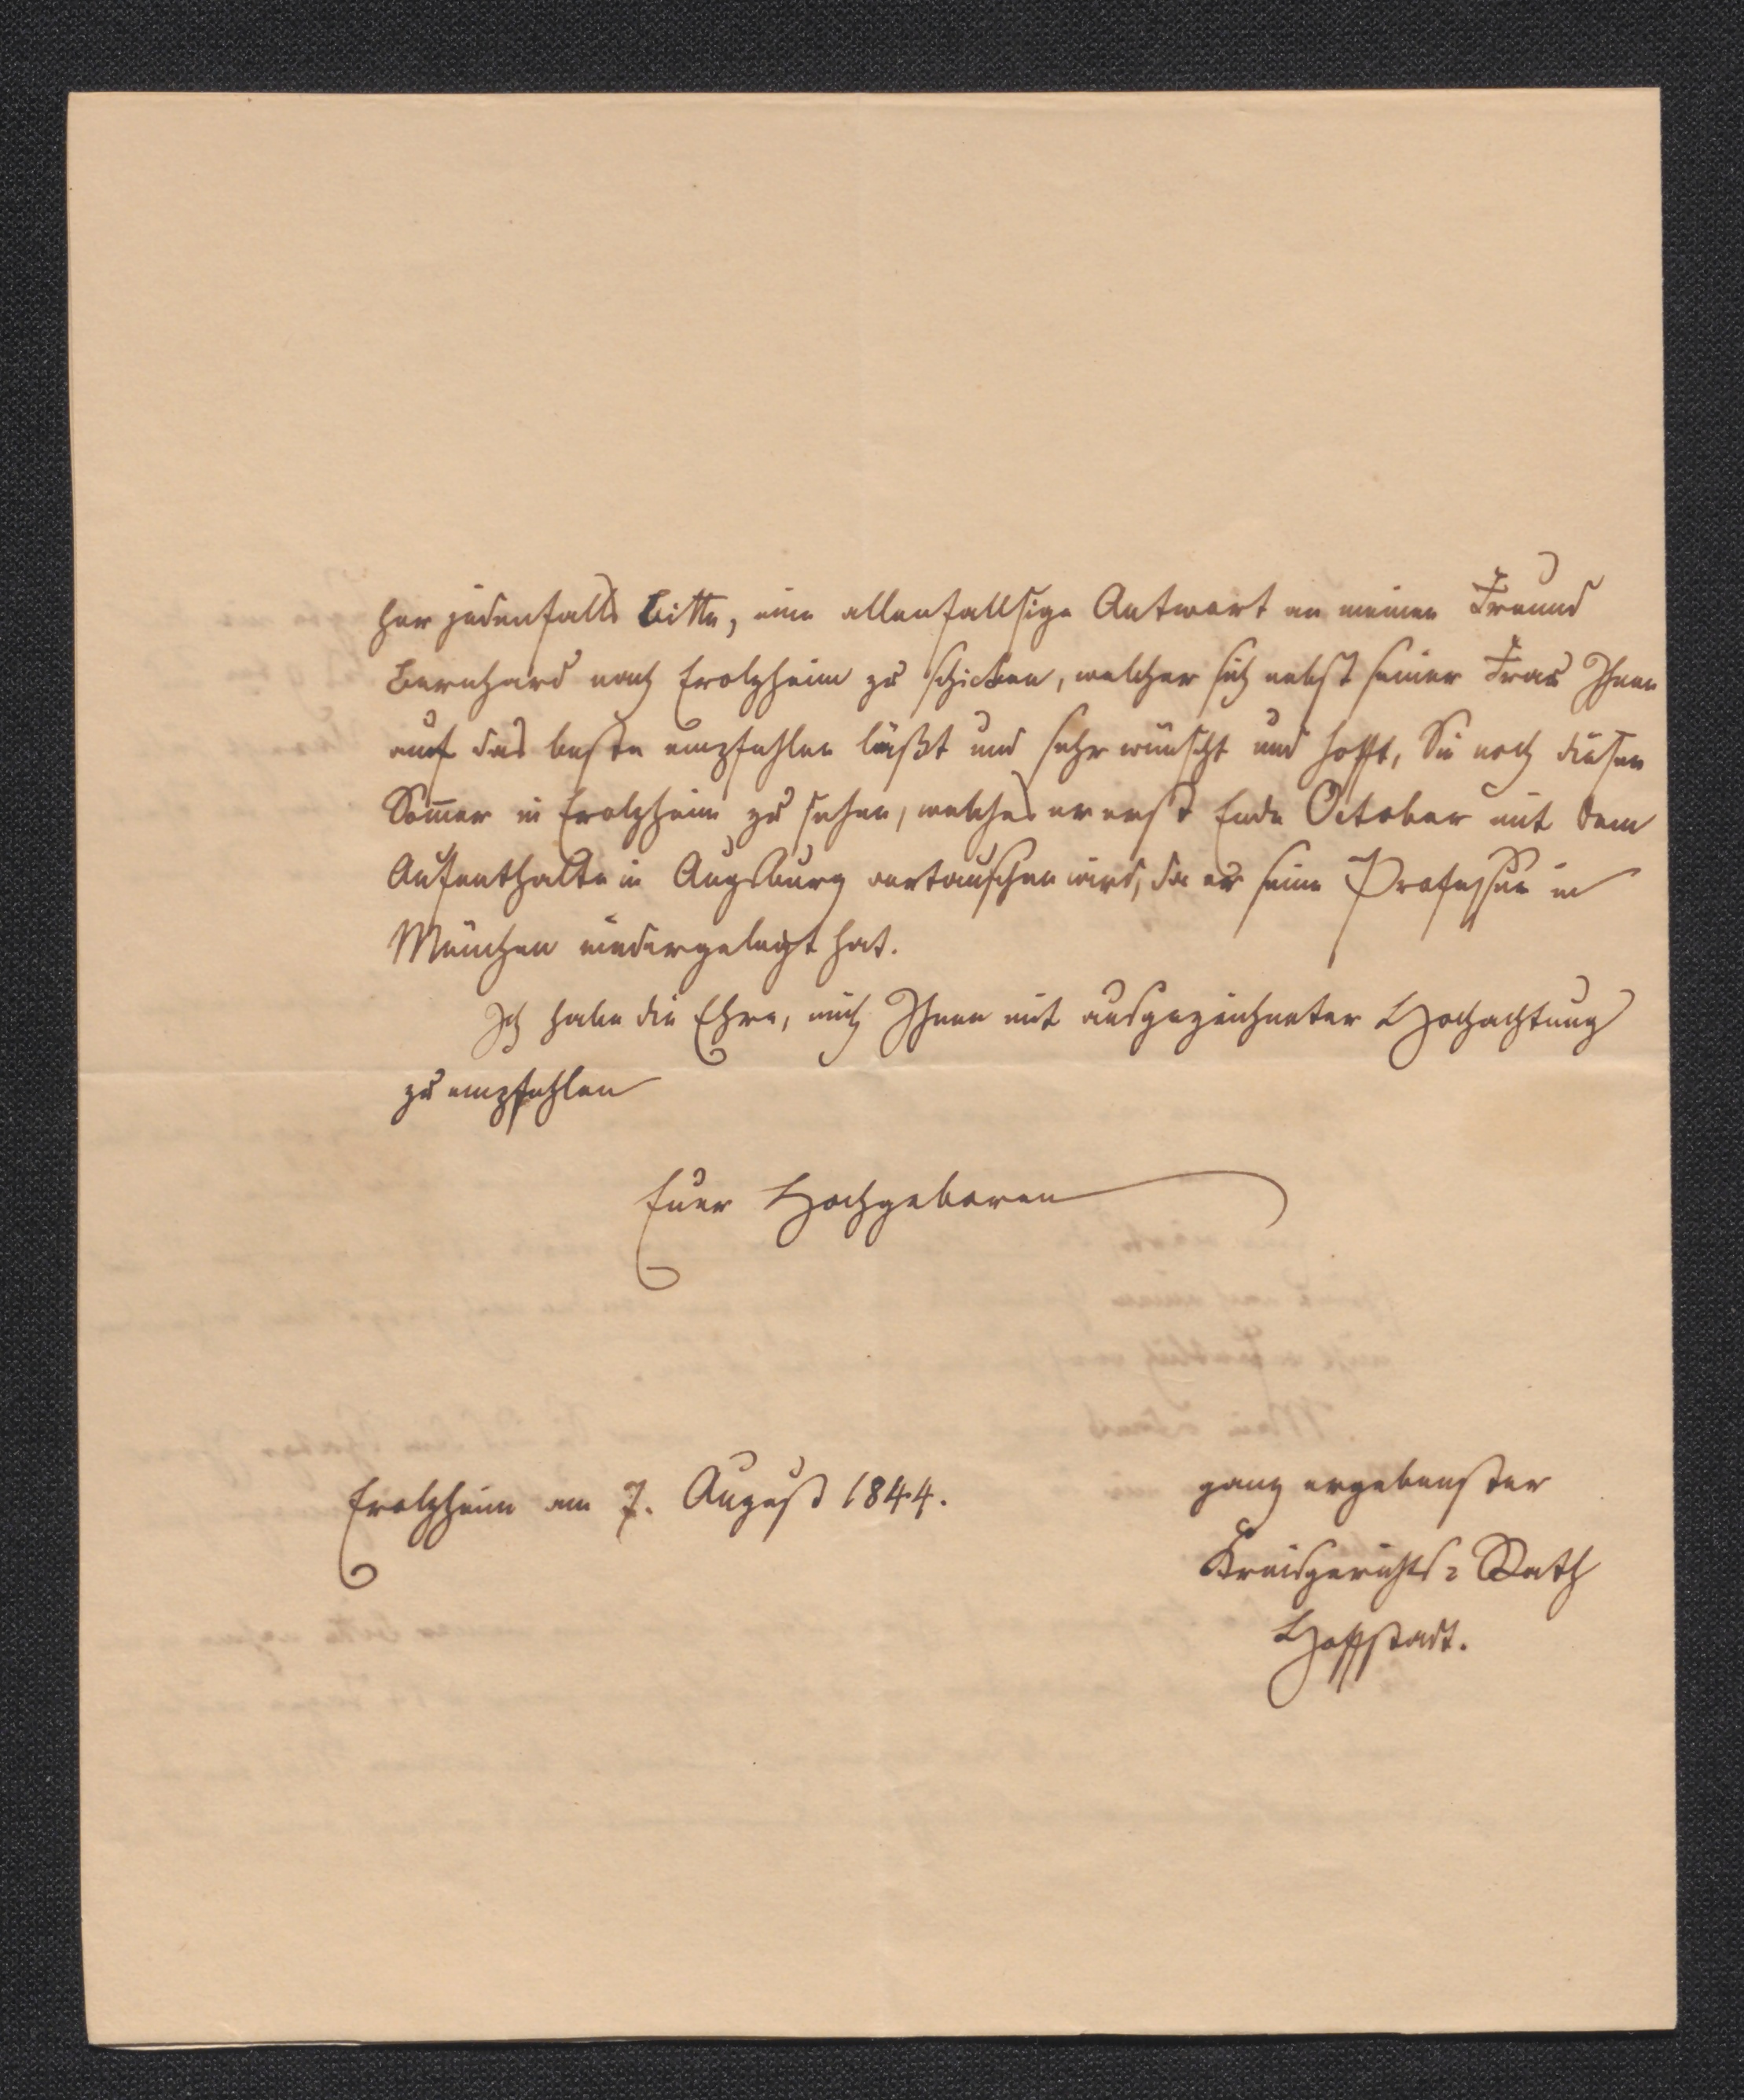 her jedenfalls bitte, eine allenfallsige Antwort an meinen Freund
Bernhard nach Erolzheim zu schicken, welcher sich nebst seiner Frau Ihnen
auf das beste empfehlen läßt und sehr wünscht und hofft, Sie noch diesen
Som̅er in Erolzheim zu sehen, welches er erst Ende October mit dem
Aufenthalte in Augsburg vertauschen wird, da er seine Professur in
München niedergelegt hat.
Ich habe die Ehre, mich Ihnen mit ausgezeichneter Hochachtung
zu empfehlen
Euer Hochgeboren
Erolzheim am 7. August 1844.
ganz ergebenster
Kreisgerichts=Rath
Hoffstadt.